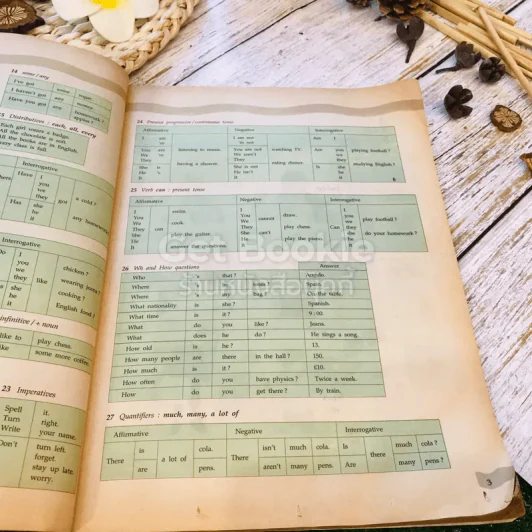 14 some / any
I've got some sugar.
I haven't got any money.
Have you got any
15 Distributives : each, all, every
Each girl wears a badge.
All the chocolate is sort.
All the books are in English.
Every class is full.
Interrogative
Have I a cold ?
you
we got
they
Has she any homework
he
it
Interrogative
Do I chicken ?
you
we wearing jeans ?
they like
she cooking ?
he
it English food ?
infinitive / + noun
like to play chess.
like some more coffee.
23 Imperatives
Spell it.
Turn right.
Write your name.
Don't turn left.
forget.
stay up late.
worry.
24 Present progressive / continuous tense
Affirmative Negative Interrogative
I am I am not Am I
You are listening to music. You are not watching TV. Are you playing football ?
We 're We aren't we
They having a shower. They eating dinner. they studying English ?
She is She is not Is she
He 's He isn't he
It It it
25 Verb can : present tense
Affirmative Negative Interrogative
I swim. I draw. I play football ?
You You cannot you
We cook. We play chess. we do your homework ?
They can They Can they
She play the guitar. She can't play the piano. she
He He he
It answer the questions. It it
26 Wh and How questions
Answer
Who is that ? Anydo.
Where Spain.
Where bag ? On the table.
What nationality is she ? Spanish.
What time is it ? 9 : 00.
What do you like ? Jeans.
What does he do ? He sings a song.
How old is he ? 13.
How many people are there in the hall ? 150.
How much is it ? £10.
How often do you have physics ? Twice a week.
How do you get there ? By train.
27 Quantifiers : much, many, a lot of
Affirmative Negative Interrogative
There is a lot of cola. There isn't much cola. Is there much cola ?
are pens. aren't many pens. Are many pens ?
3
Get Bookie
ร้านหนังสือเก็ทบุ๊คกี้